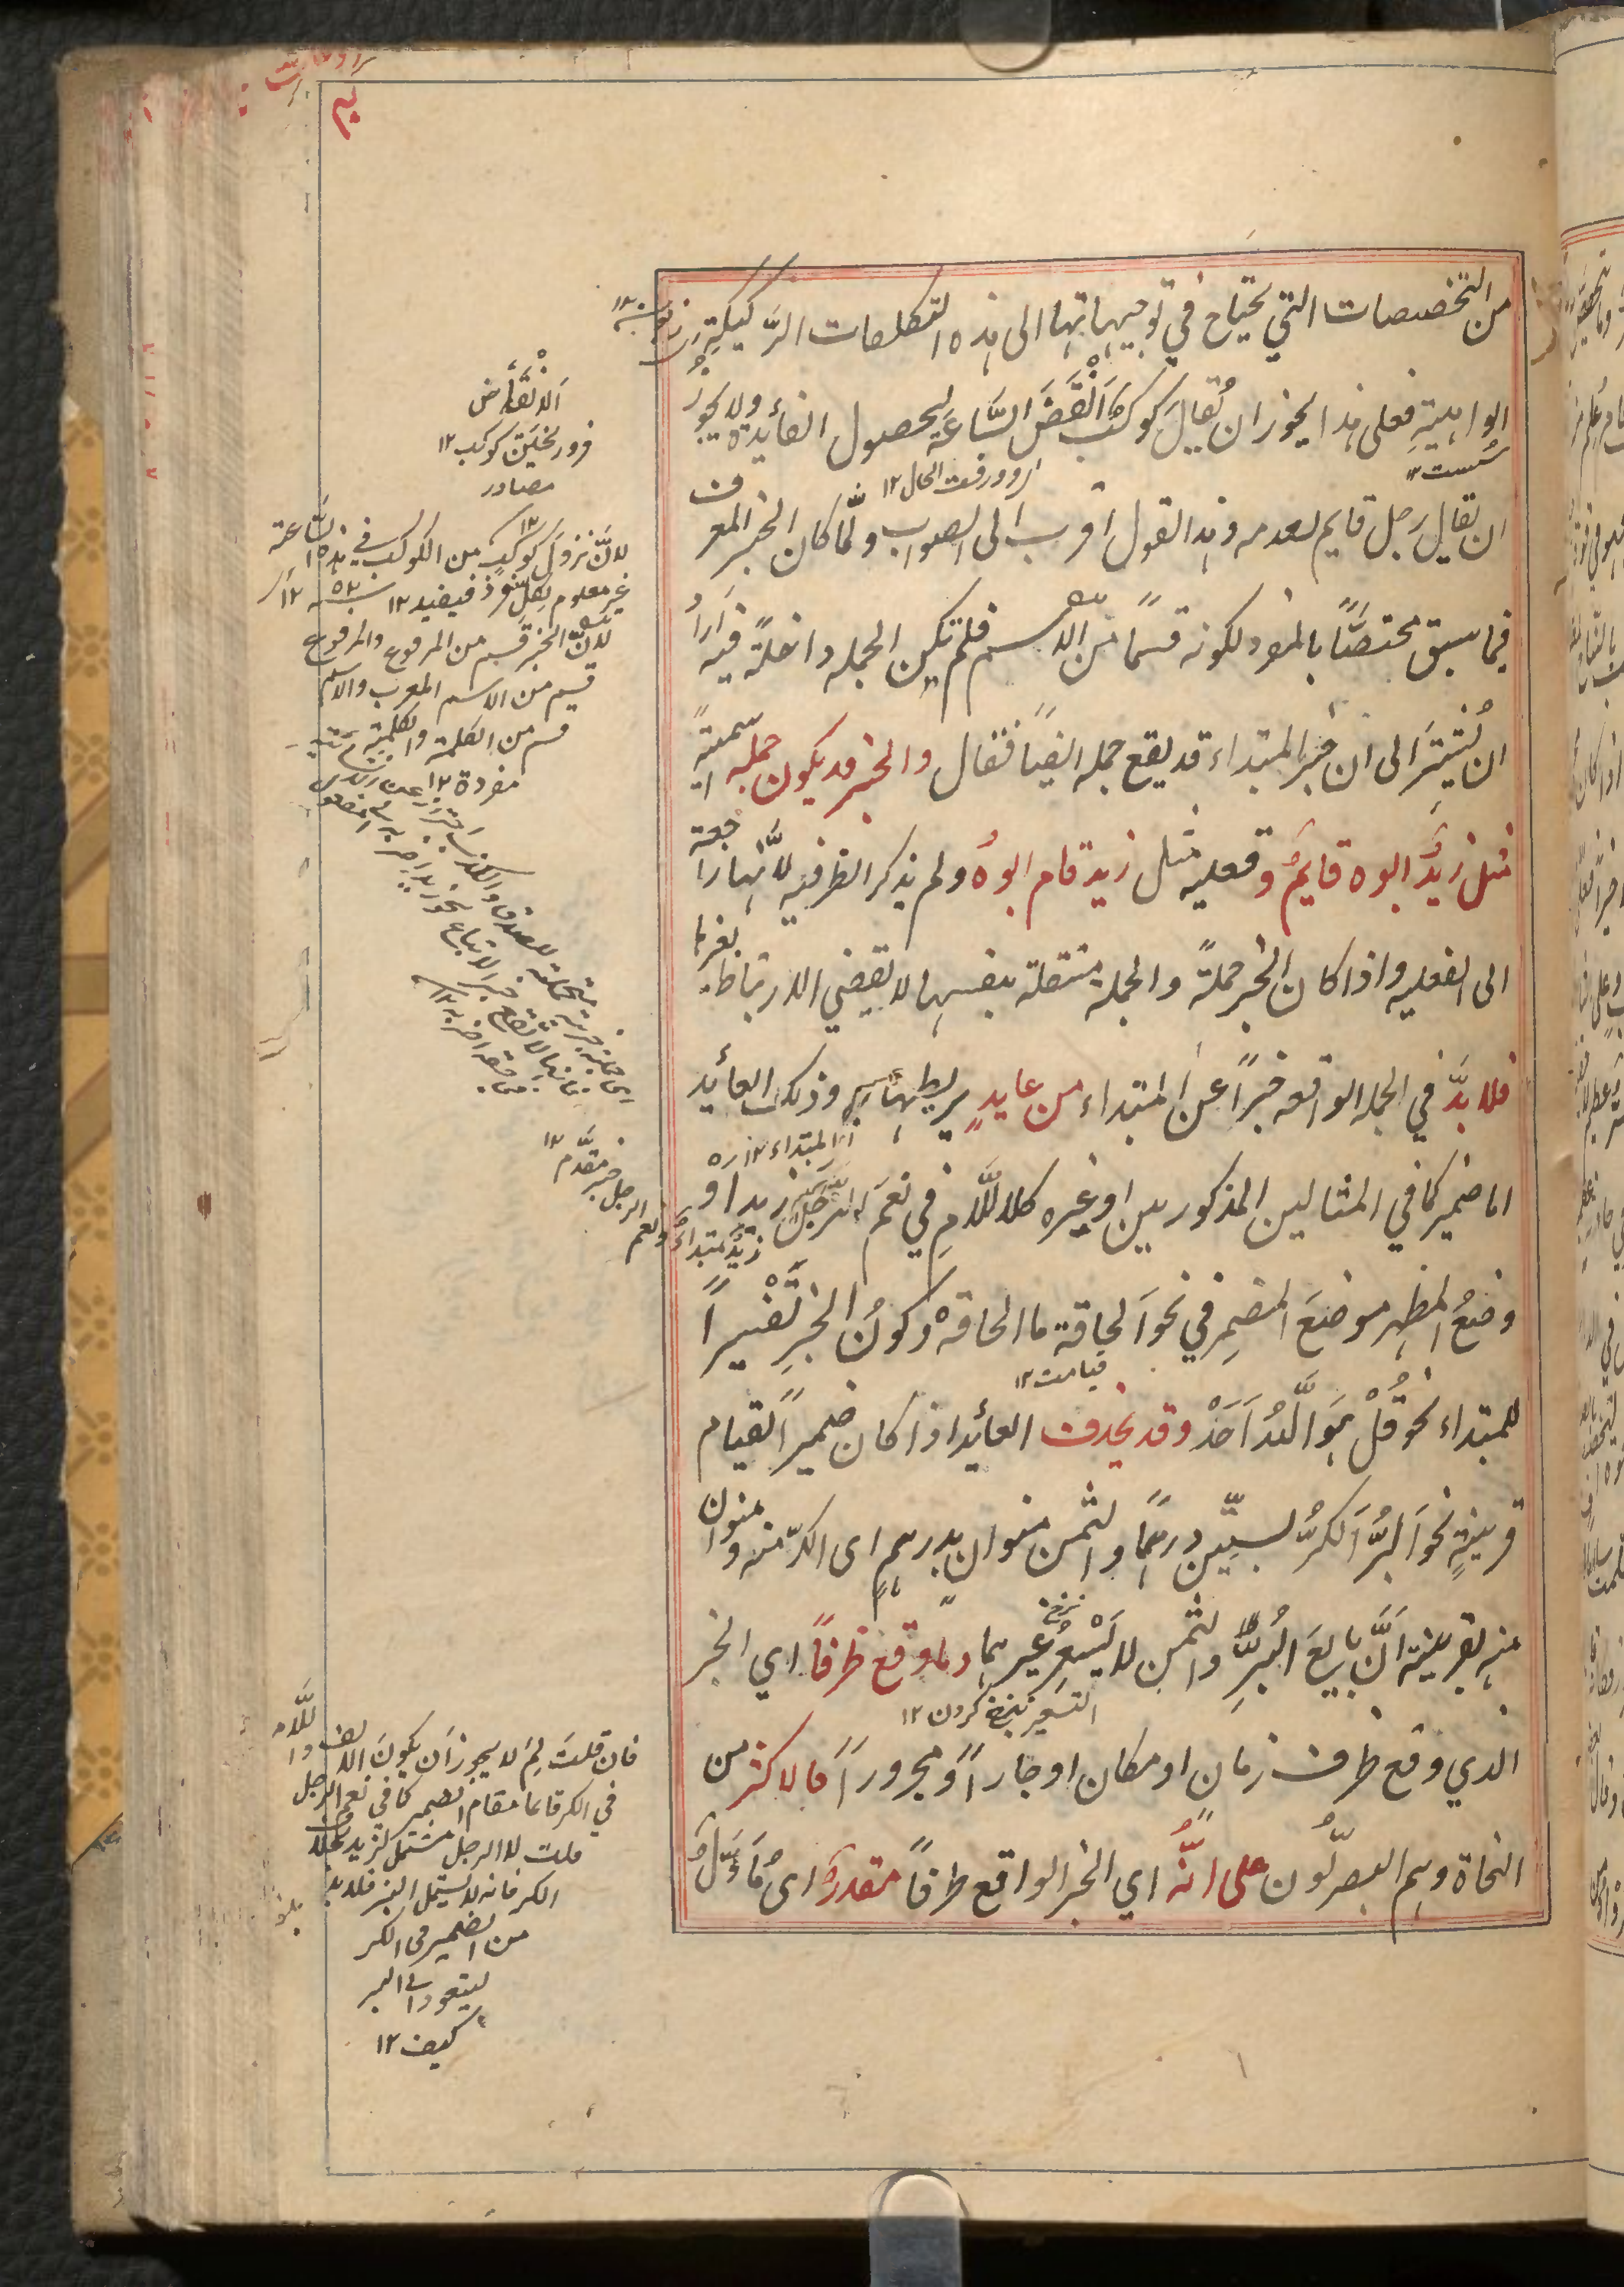 من التخصصات التي يحتاج في توجيهاتها الى هذه التكلفات الركيكة
الواهية فعلى هذا يجوز ان يقال كوكب انقض الساعة لحصول الفائدة ولا يجوز
ان يقال رجل قايم لعدمه وهذا القول اقرب الى الصواب ولما كان الخبر المعرف
فيما سبق مختصًّا بالمفرد لكونه قسمًا من الاسم فلم تكن الجملة داخلةً فيه اراد
ان يُشيرَ الى ان خبر المبتداء قد يقع جمله ايضًا فقال والخبر قد يكون جمله اسميةً
مثل زيدٌ ابوه قايمٌ وفعليه مثل زيد قام ابوهُ ولم يذكر الظرفيه لانّها راجعة
الى الفعليه واذا كان الخبر جملةً والجملة مستقلة بنفسها لا تقتضي الارتباط بغيرها
فلا بدَّ في الجملة الواقعه خبرًا عن المبتداء من عايدٍ يربطها به وذلك العائد
اما ضمير كما في المثالين المذكورين او غيره كاللّام في نعم الرجل زيد او
وضعُ المظهر موضعَ المضمر في نحو الحاقة ما الحاقة وكونُ الخبرِ تفسيرًا
للمبتداء نحو قُلْ هُوَ اللّهُ اَحَدٌ وقد يحذف العائد اذا كان ضميرًا لقيام
قرينةٍ نحو البرّ الكرّ بستّين درهمًا والسمن منوان بدرهمٍ اى الكرّ منه ومنوان
منه بقرينة انّ بايعَ البُرِّ والسمن لا يُسعِّر غيرهما وما وقع ظرفًا اي الخبر
الذي وقع ظرف زمان او مكان او جارًا ومجرورًا فالاكثر من
النحاة وهم البصريّون على انّه اي الخبر الواقع ظرفًا مقدرٌ اى مُأوَّلٌ
سست
زود رفت الحال ١٢
اى المبتداء ١٢
قيامت ١٢
نرخ
التسعير نرخ كردن ١٢
الانقضاض
فرو ريختن كوكب ١٢
مصادر
لانّ نزول كوكبٍ من الكوكب في هذه الساعة
غير معلوم لكل فيفيد ١٢
لانّ الخبر قسم من المرفوع والمرفوع
قسم من الاسم المعرب والاسم
قسم من الكلمة والكلمة
مفردة ١٢
زيدٌ مبتداءٌ ونعم الرجل خبر مقدّم ١٢
فان قلتَ لِمَ لا يجوز اَن يكونَ الالف واللّام
في الكر قايما مقام الضمير كما في نعم الرجل
قلت لا الرجل مشتمل لزيد
الكر فانه لا يشتمل البر فلا بد
من الضمير فى الكر
ليعود الى البر
كيف ١٢